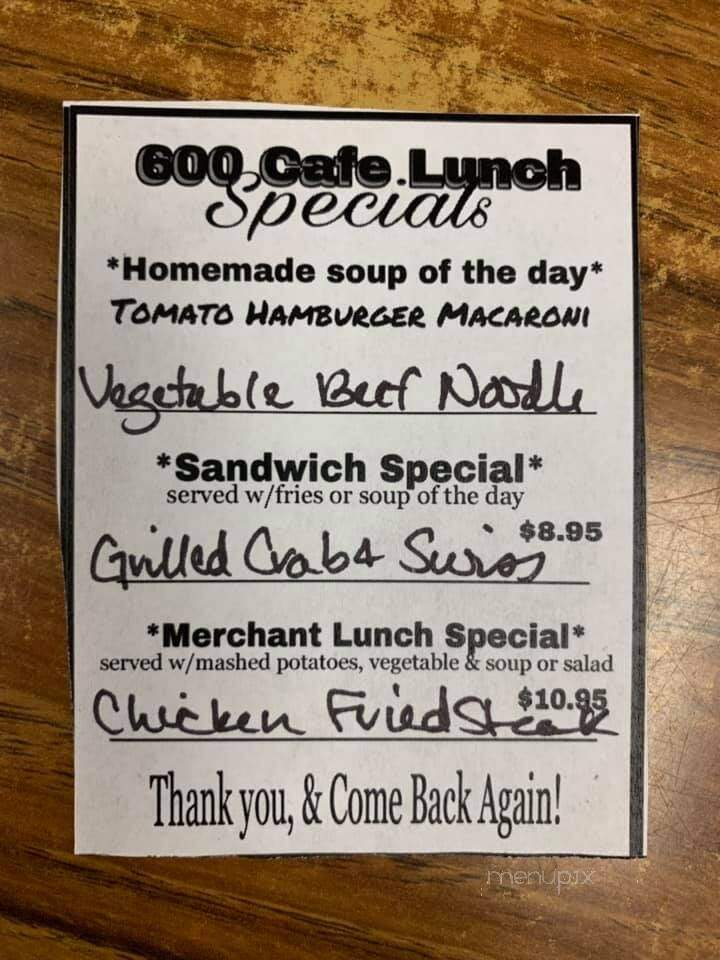 600 Cafe Lunch
Specials
*Homemade soup of the day*
TOMATO HAMBURGER MACARONI
Vegetable Beef Noodle
*Sandwich Special*
served w/fries or soup of the day
$8.95
Grilled Crab & Swiss
*Merchant Lunch Special*
served w/mashed potatoes, vegetable & soup or salad
$10.95
Chicken Fried Steak
Thank you, & Come Back Again!
menupix